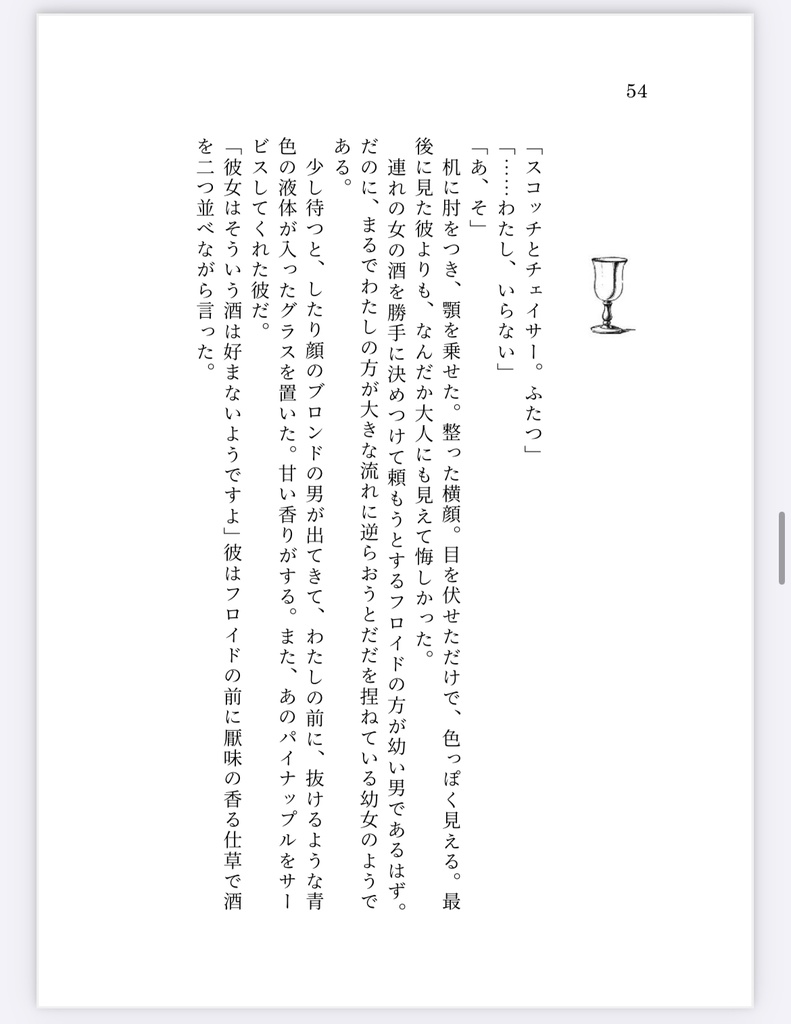 54
「スコッチとチェイサー。ふたつ」
「……わたし、いらない」
「あ、そ」
机に肘をつき、顎を乗せた。整った横顔。目を伏せただけで、色っぽく見える。最
後に見た彼よりも、なんだか大人にも見えて悔しかった。
連れの女の酒を勝手に決めつけて頼もうとするフロイドの方が幼い男であるはず。
だのに、まるでわたしの方が大きな流れに逆らおうとだだを捏ねている幼女のようで
ある。
少し待つと、したり顔のブロンドの男が出てきて、わたしの前に、抜けるような青
色の液体が入ったグラスを置いた。甘い香りがする。また、あのパイナップルをサー
ビスしてくれた彼だ。
「彼女はそういう酒は好まないようですよ」彼はフロイドの前に厭味の香る仕草で酒
を二つ並べながら言った。